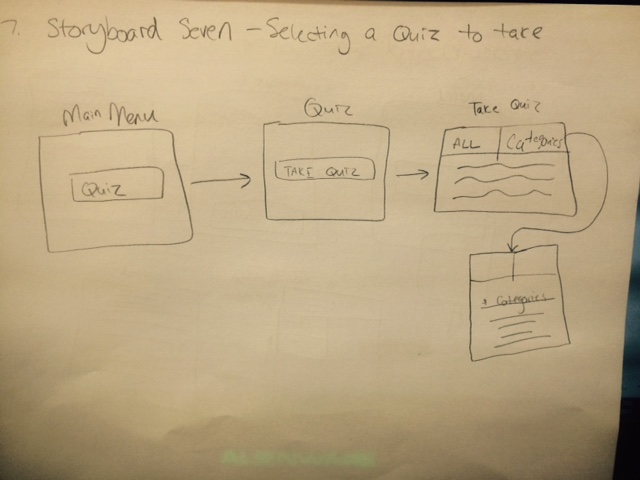 7. Storyboard Seven - Selecting a Quiz to take
Main Menu
Quiz
Quiz
TAKE QUIZ
Take Quiz
ALL Categories
Categories